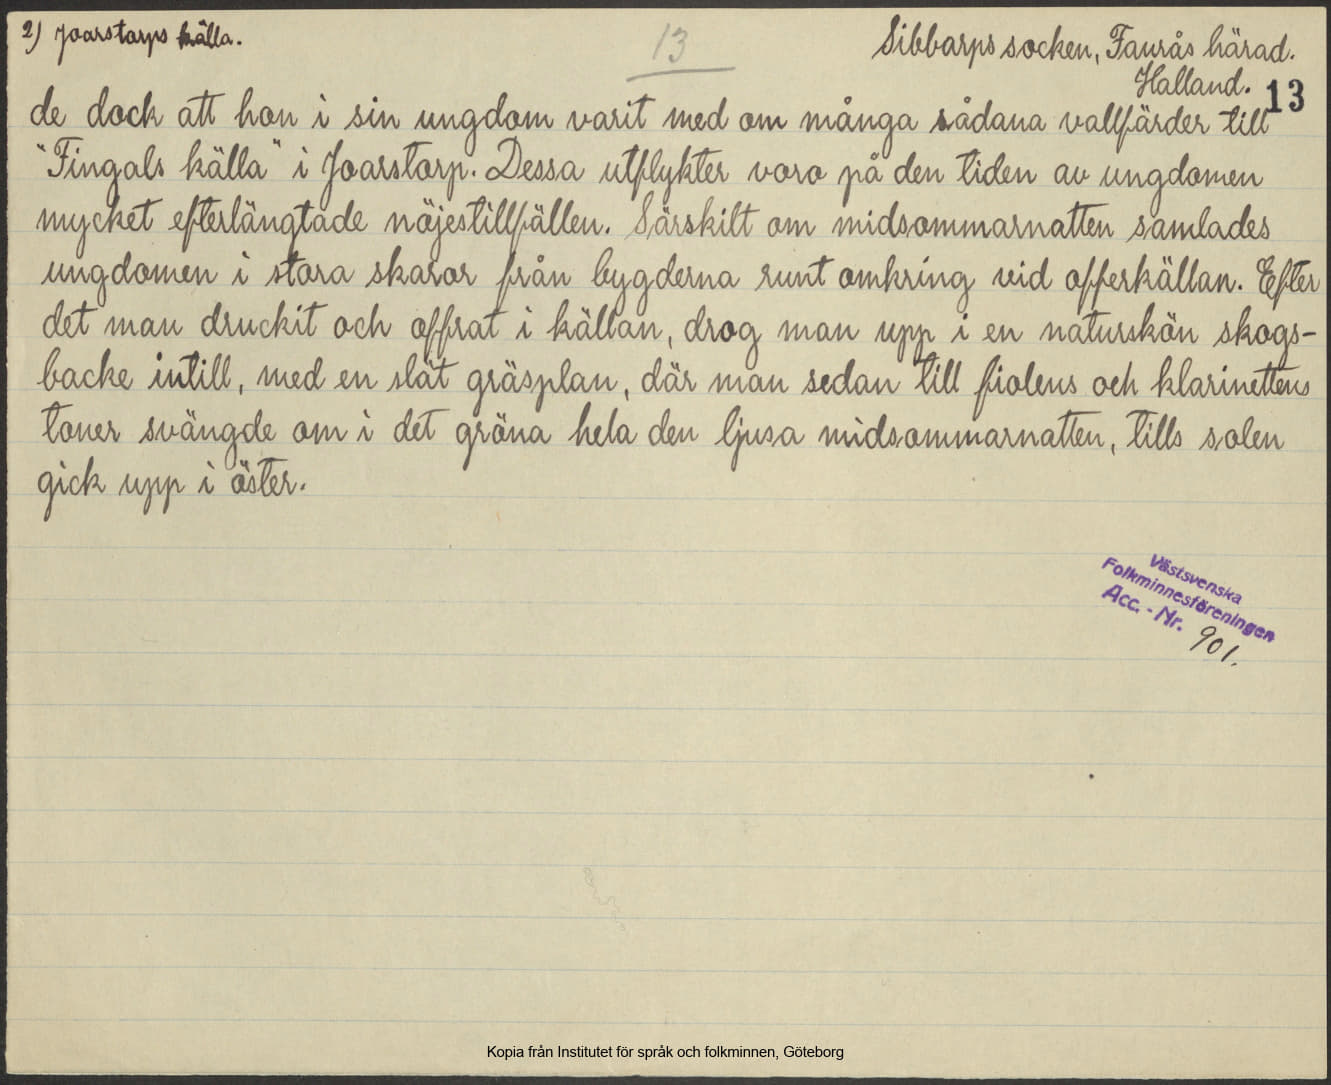 2) Joarstorps källa.
13
Sibbarps socken, Faurås härad.
Halland. 13
de dock att hon i sin ungdom varit med om många sådana vallfärder till
"Fingals källa" i Joarstorp. Dessa utflykter voro på den tiden av ungdomen
mycket efterlängtade nöjestillfällen. Särskilt om midsommarnatten samlades
ungdomen i stora skaror från bygderna runt omkring vid offerkällan. Efter
det man druckit och offrat i källan, drog man upp i en naturskön skogs-
backe intill, med en slät gräsplan, där man sedan till fiolens och klarinettens
toner svängde om i det gröna hela den ljusa midsommarnatten, tills solen
gick upp i öster.
Västsvenska
Folkminnesföreningen
Acc. - Nr. 901.
Kopia från Institutet för språk och folkminnen, Göteborg